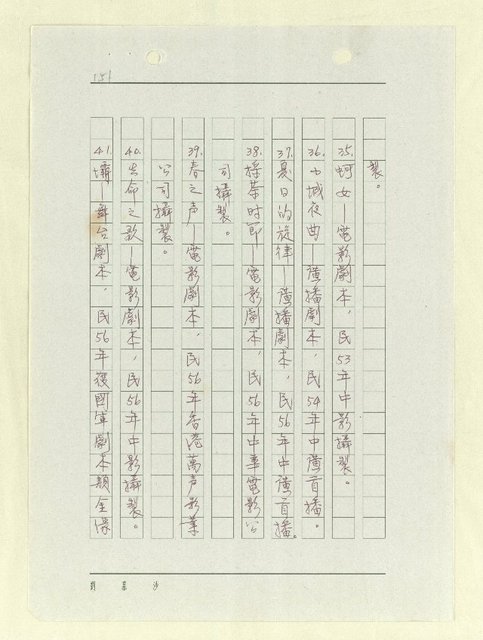 151
製。
35. 蚵女—電影劇本，民53年中影攝製。
36. 小城夜曲—廣播劇本，民54年中廣首播。
37. 夏日的旋律—廣播劇本，民56年中廣首播。
38. 採茶时節—電影劇本，民56年中華電影公
司攝製。
39. 春之声—電影劇本，民56年香港萬声影業
公司攝製。
40. 生命之歌—電影劇本，民56年中影攝製。
41. 壩—舞台劇本，民56年獲國軍劇本類金像
劉慕沙